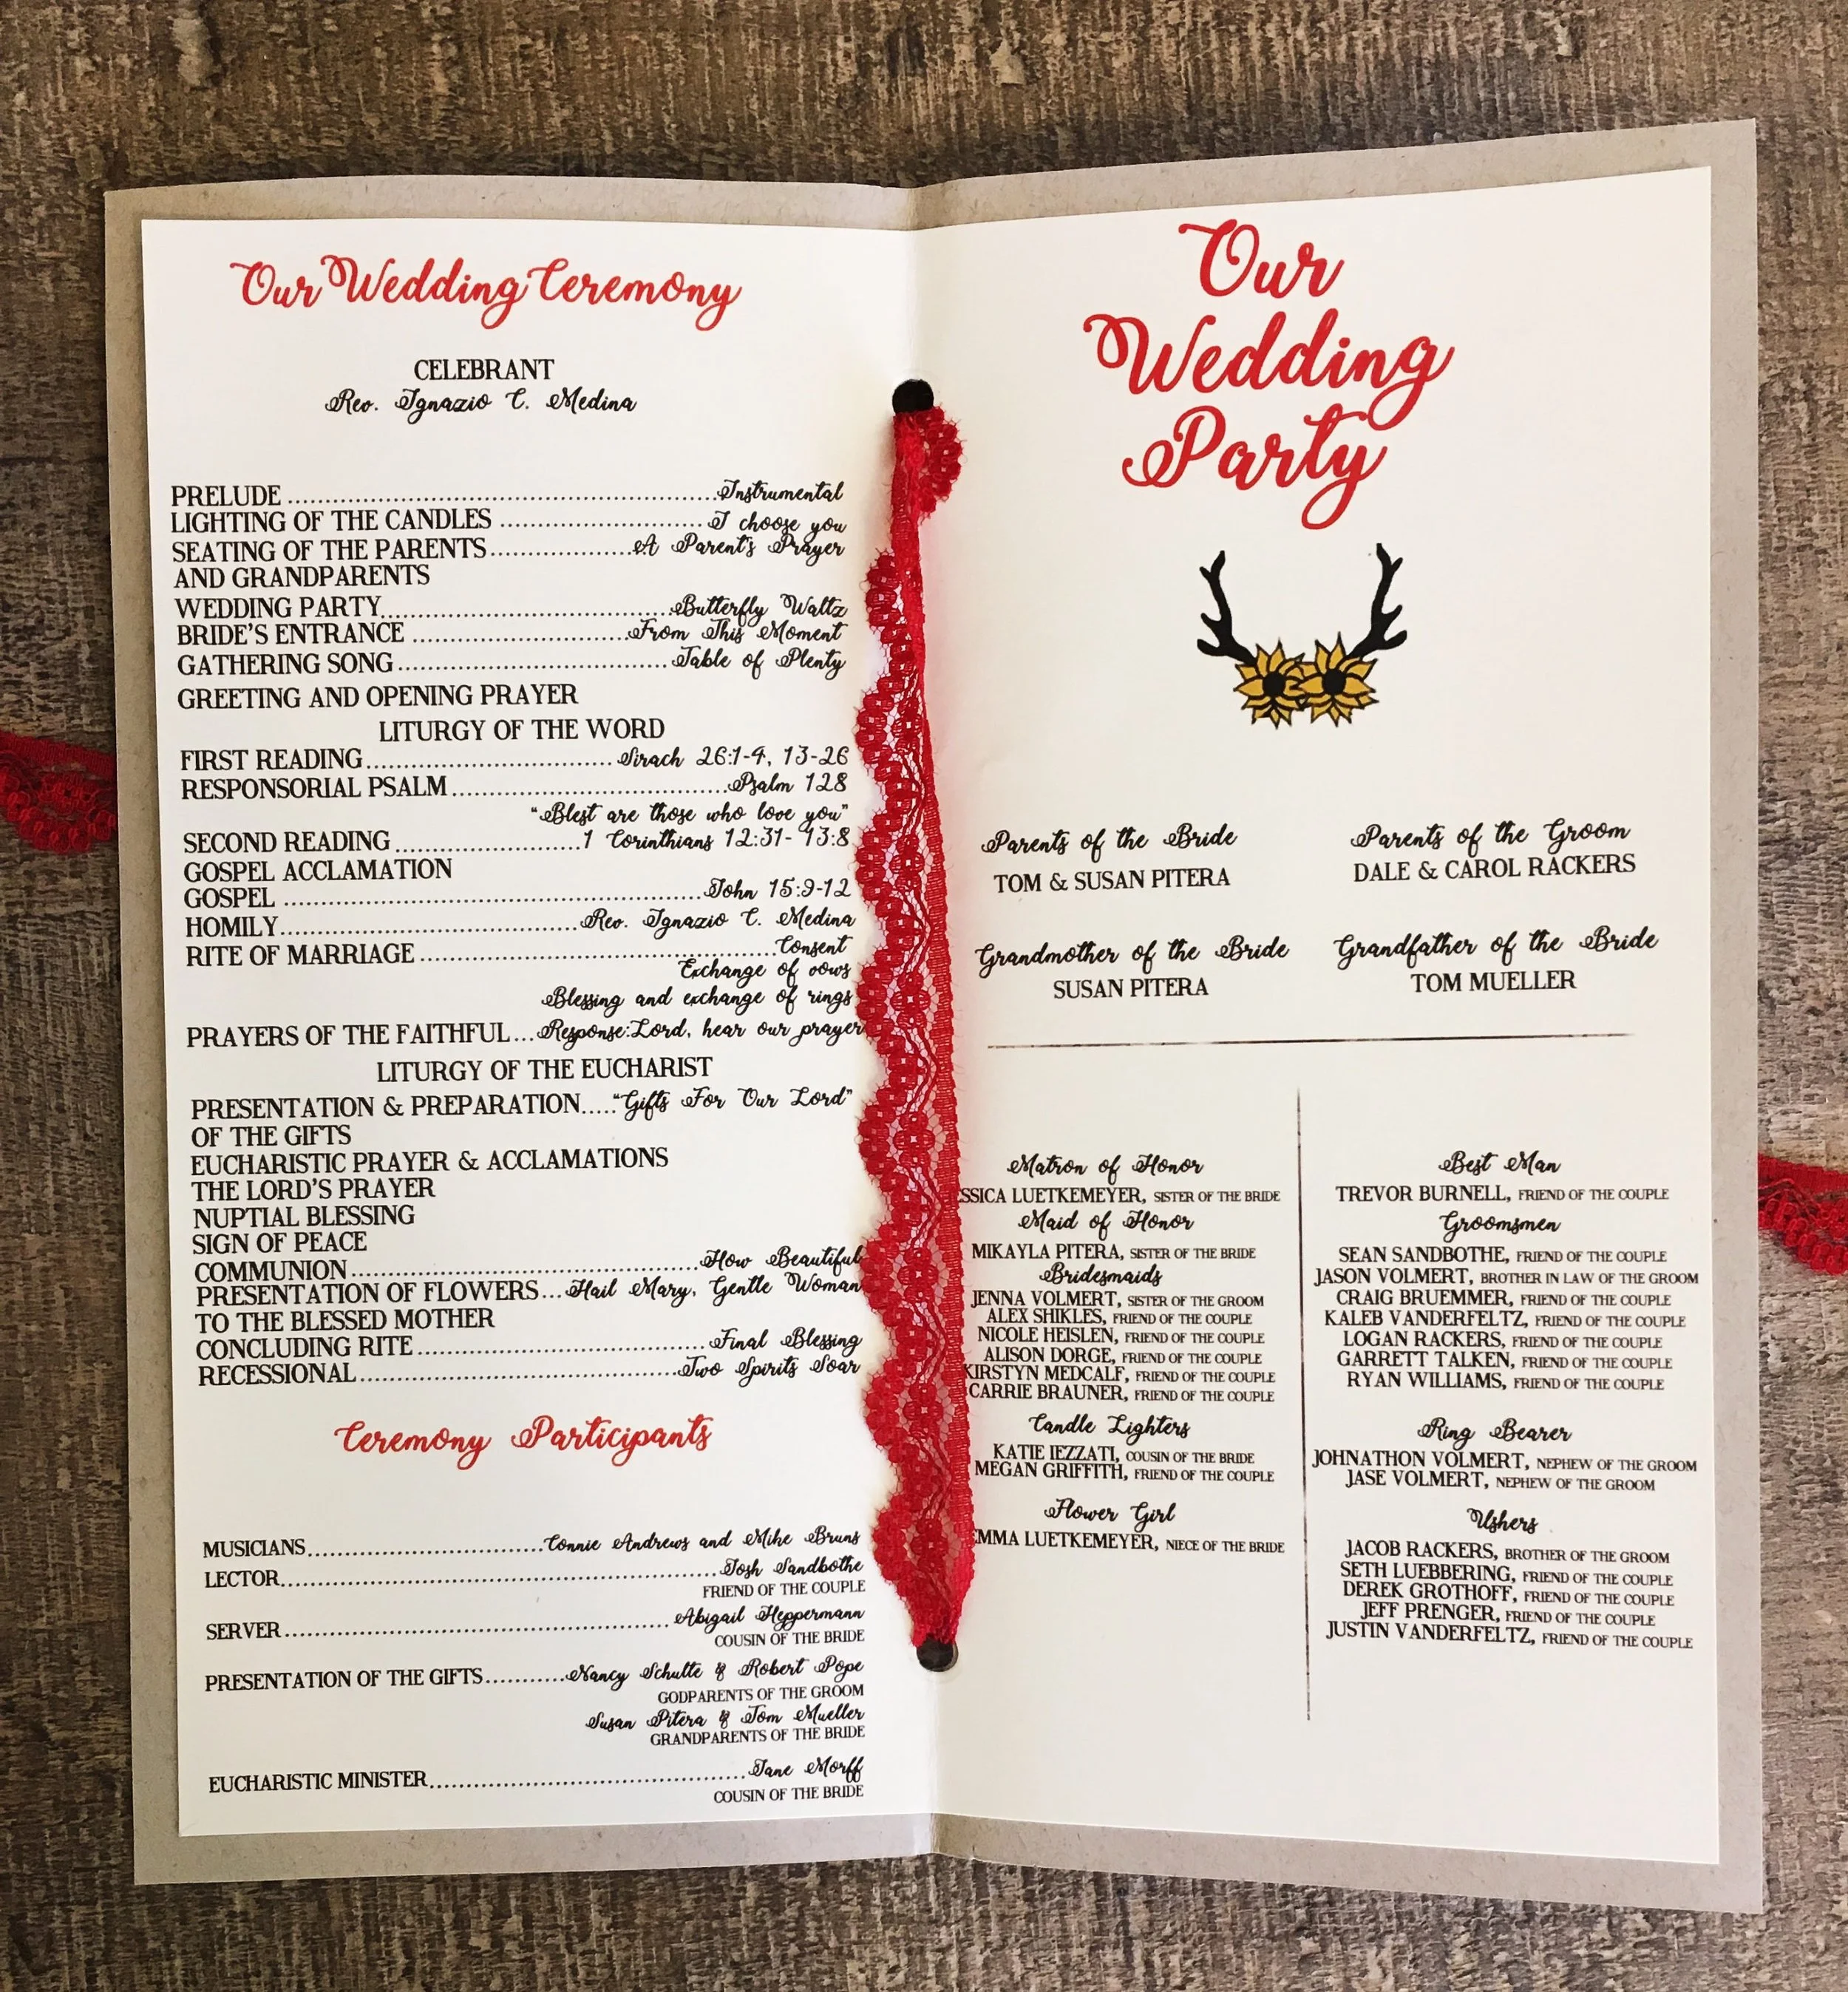 Our Wedding Ceremony
CELEBRANT
Rev. Ignazio C. Medina
PRELUDE ........ Instrumental
LIGHTING OF THE CANDLES ........ I choose you
SEATING OF THE PARENTS ........ A Parent's Prayer
AND GRANDPARENTS
WEDDING PARTY ........ Butterfly Waltz
BRIDE'S ENTRANCE ........ From This Moment
GATHERING SONG ........ Table of Plenty
GREETING AND OPENING PRAYER
LITURGY OF THE WORD
FIRST READING ........ Sirach 26:1-4, 13-26
RESPONSORIAL PSALM ........ Psalm 128
"Blest are those who love you"
SECOND READING ........ 1 Corinthians 12:31- 13:8
GOSPEL ACCLAMATION
GOSPEL ........ John 15:9-12
HOMILY ........ Rev. Ignazio C. Medina
RITE OF MARRIAGE ........ Consent
Exchange of vows
Blessing and exchange of rings
PRAYERS OF THE FAITHFUL ... Response: Lord, hear our prayer
LITURGY OF THE EUCHARIST
PRESENTATION & PREPARATION ..... "Gifts For Our Lord"
OF THE GIFTS
EUCHARISTIC PRAYER & ACCLAMATIONS
THE LORD'S PRAYER
NUPTIAL BLESSING
SIGN OF PEACE
COMMUNION ........ How Beautiful
PRESENTATION OF FLOWERS ... Hail Mary, Gentle Woman
TO THE BLESSED MOTHER
CONCLUDING RITE ........ Final Blessing
RECESSIONAL ........ Two Spirits Soar
Ceremony Participants
MUSICIANS ........ Connie Andrews and Mike Bruns
LECTOR ........ Josh Sandbothe
FRIEND OF THE COUPLE
SERVER ........ Abigail Heppermann
COUSIN OF THE BRIDE
PRESENTATION OF THE GIFTS ........ Nancy Schulte & Robert Pope
GODPARENTS OF THE GROOM
Susan Pitera & Tom Mueller
GRANDPARENTS OF THE BRIDE
EUCHARISTIC MINISTER ........ Jane Morff
COUSIN OF THE BRIDE
Our
Wedding
Party
Parents of the Bride
TOM & SUSAN PITERA
Parents of the Groom
DALE & CAROL RACKERS
Grandmother of the Bride
SUSAN PITERA
Grandfather of the Bride
TOM MUELLER
Matron of Honor
SSICA LUETKEMEYER, SISTER OF THE BRIDE
Maid of Honor
MIKAYLA PITERA, SISTER OF THE BRIDE
Bridesmaids
JENNA VOLMERT, SISTER OF THE GROOM
ALEX SHIKLES, FRIEND OF THE COUPLE
NICOLE HEISLEN, FRIEND OF THE COUPLE
ALISON DORGE, FRIEND OF THE COUPLE
KIRSTYN MEDCALF, FRIEND OF THE COUPLE
CARRIE BRAUNER, FRIEND OF THE COUPLE
Candle Lighters
KATIE IEZZATI, COUSIN OF THE BRIDE
MEGAN GRIFFITH, FRIEND OF THE COUPLE
Flower Girl
EMMA LUETKEMEYER, NIECE OF THE BRIDE
Best Man
TREVOR BURNELL, FRIEND OF THE COUPLE
Groomsmen
SEAN SANDBOTHE, FRIEND OF THE COUPLE
JASON VOLMERT, BROTHER IN LAW OF THE GROOM
CRAIG BRUEMMER, FRIEND OF THE COUPLE
KALEB VANDERFELTZ, FRIEND OF THE COUPLE
LOGAN RACKERS, FRIEND OF THE COUPLE
GARRETT TALKEN, FRIEND OF THE COUPLE
RYAN WILLIAMS, FRIEND OF THE COUPLE
Ring Bearer
JOHNATHON VOLMERT, NEPHEW OF THE GROOM
JASE VOLMERT, NEPHEW OF THE GROOM
Ushers
JACOB RACKERS, BROTHER OF THE GROOM
SETH LUEBBERING, FRIEND OF THE COUPLE
DEREK GROTHOFF, FRIEND OF THE COUPLE
JEFF PRENGER, FRIEND OF THE COUPLE
JUSTIN VANDERFELTZ, FRIEND OF THE COUPLE